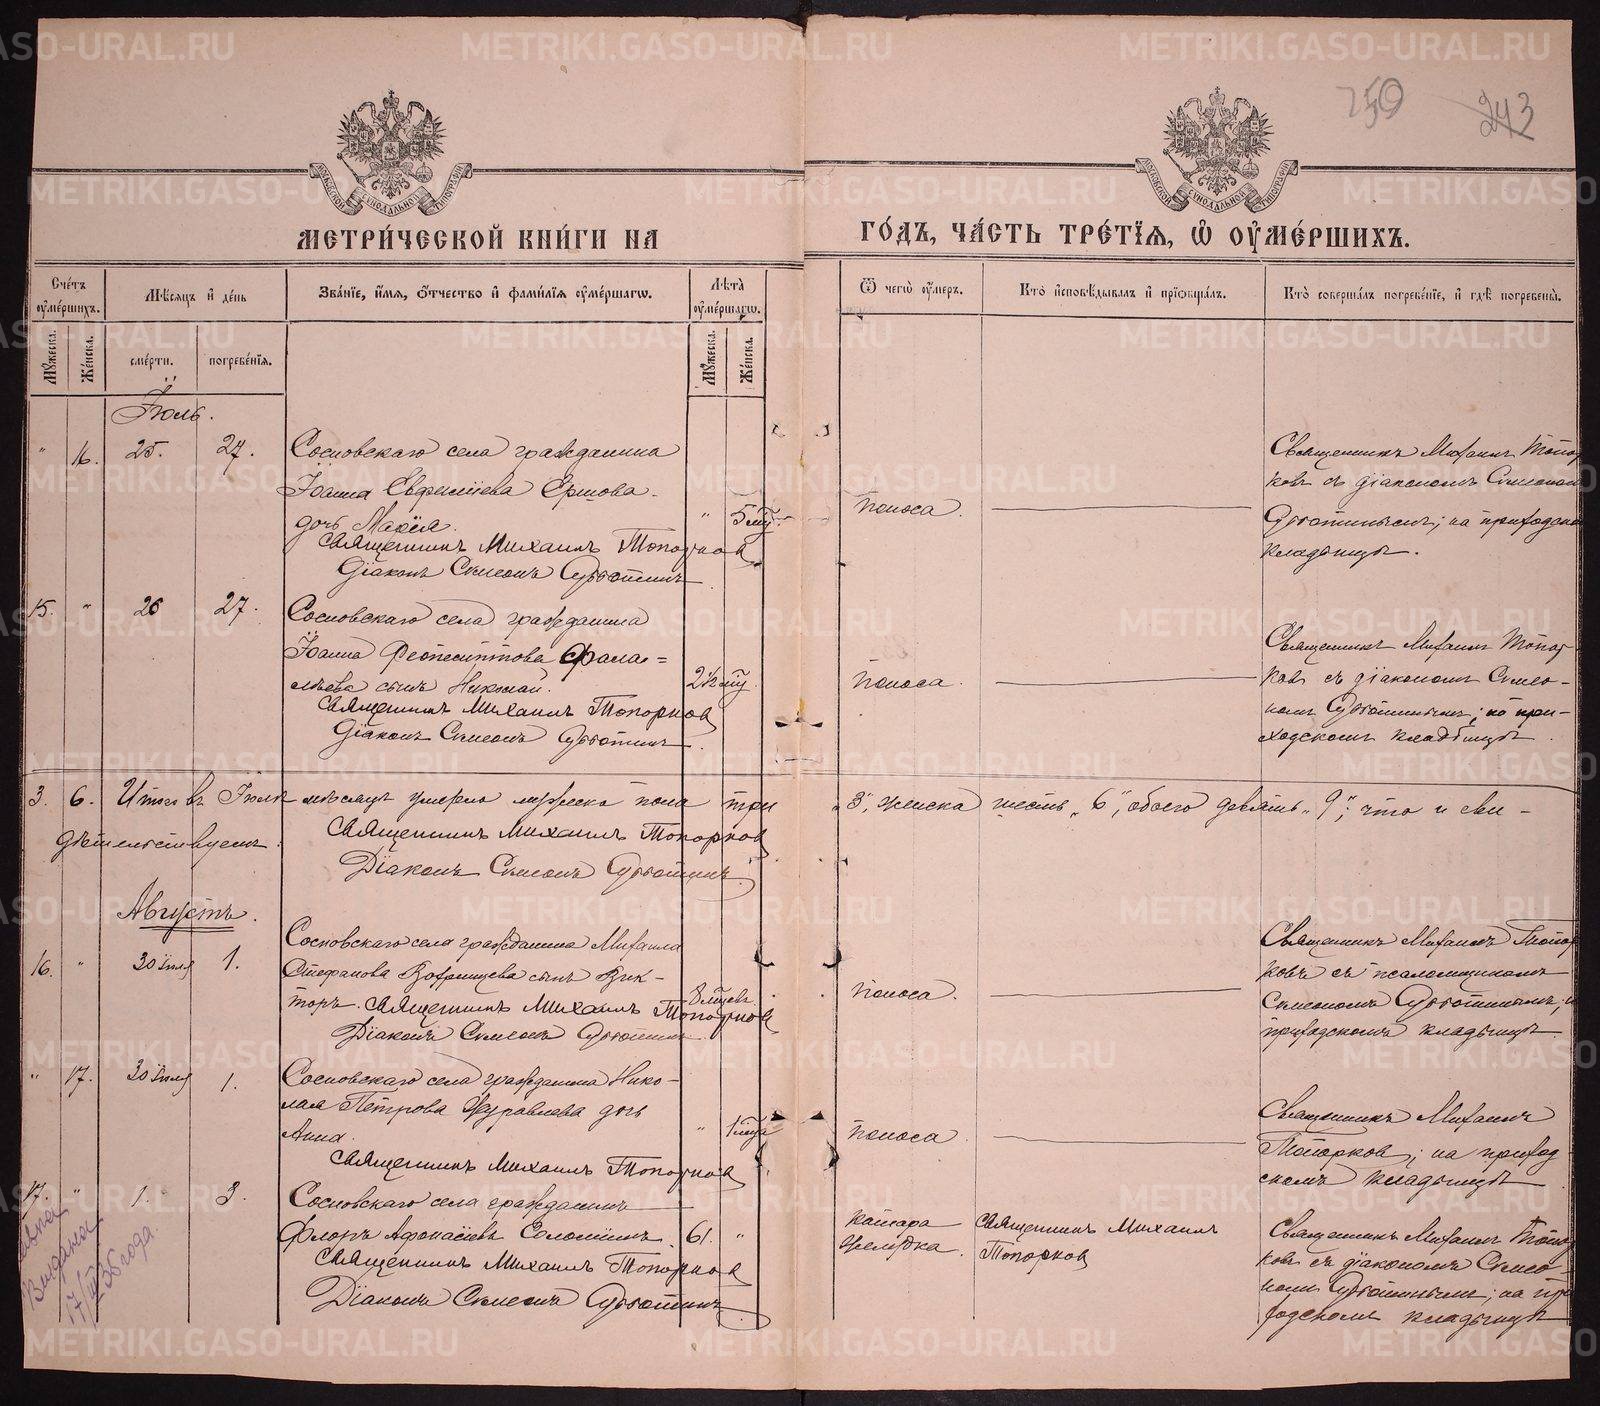 250
243
МЕТРИ́ЧЕСКОЙ КНИ́ГИ НА
ГО́ДЪ, ЧА́СТЬ ТРЕ́ТЇѦ, Ѡ ОУМЕ́РШИХЪ.
Сче́тъ оуме́ршихъ.
Мѣ́сяцъ и де́нь
Зва́нїе, и́мя, о́тчество и фами́лїя оуме́ршагѡ.
Лѣ́та оуме́ршагѡ.
Ѿ чегѡ̀ оу́меръ.
Кто̀ исповѣ́дывалъ и прїѡбща́лъ.
Кто̀ соверша́лъ погребе́нїе, и гдѣ̀ погребены̀.
Му́жеска.
Же́нска.
сме́рти.
погребе́нїя.
Му́жеска.
Же́нска.
Іюль.
" 16. 25. 27. Сосновскаго села гражданина
Іоанна Евфиміева Ершова
дочь Марія. " 5 мц.
Священникъ Михаилъ Топорков
Діаконъ Симеонъ Субботинъ
Поноса.
Священникъ Михаилъ Топор
ковъ съ діакономъ Симеоном
Субботинымъ; на приходско
кладбищѣ.
15. " 26 27. Сосновскаго села гражданина
Іоанна Феопемптова Фала=
лѣева сынъ Николай. 2 1/2 мц.
Священникъ Михаилъ Топорков
Діаконъ Симеонъ Субботинъ.
Поноса.
Священникъ Михаилъ Топор
ковъ съ діакономъ Симео-
номъ Субботинымъ; на при-
ходскомъ кладбищѣ.
3. 6. Итого въ Іюлѣ мѣсяцѣ умерло мужеска пола три „3", женска шесть „6", обоего девять „9"; что и сви-
дѣтельствуемъ.
Священникъ Михаилъ Топорков
Діаконъ Симеонъ Субботинъ.
Августъ.
16. " 30 Іюля 1. Сосновскаго села гражданина Михаила
Стефанова сынъ Вик-
торъ. Священникъ Михаилъ Топорков
8 мцевъ.
Діаконъ Симеонъ Субботинъ
Поноса.
Священникъ Михаилъ Топор
ковъ съ псаломщикомъ
Симеономъ Субботинымъ; н
приходскомъ кладбищѣ
" 17. 30 Іюля 1. Сосновскаго села гражданина Нико-
лая Петрова Журавлева дочь
Анна. " 1 мца
Священникъ Михаилъ Топорков
Поноса
Священникъ Михаилъ
Топорков; на приход-
скомъ кладбищѣ
17. " 1. 3. Сосновскаго села гражданинъ
Флоръ Афонасіевъ Соломеинъ. 61. "
Священникъ Михаилъ Топорков
Діаконъ Симеонъ Субботинъ
желудка.
Священникъ Михаилъ
Топорков
Священникъ Михаилъ Топор
ковъ съ діакономъ Симео-
номъ Субботинымъ; на при
ходскомъ кладбищѣ
Выдана
17/II 36 года.
METRIKI.GASO-URAL.RU